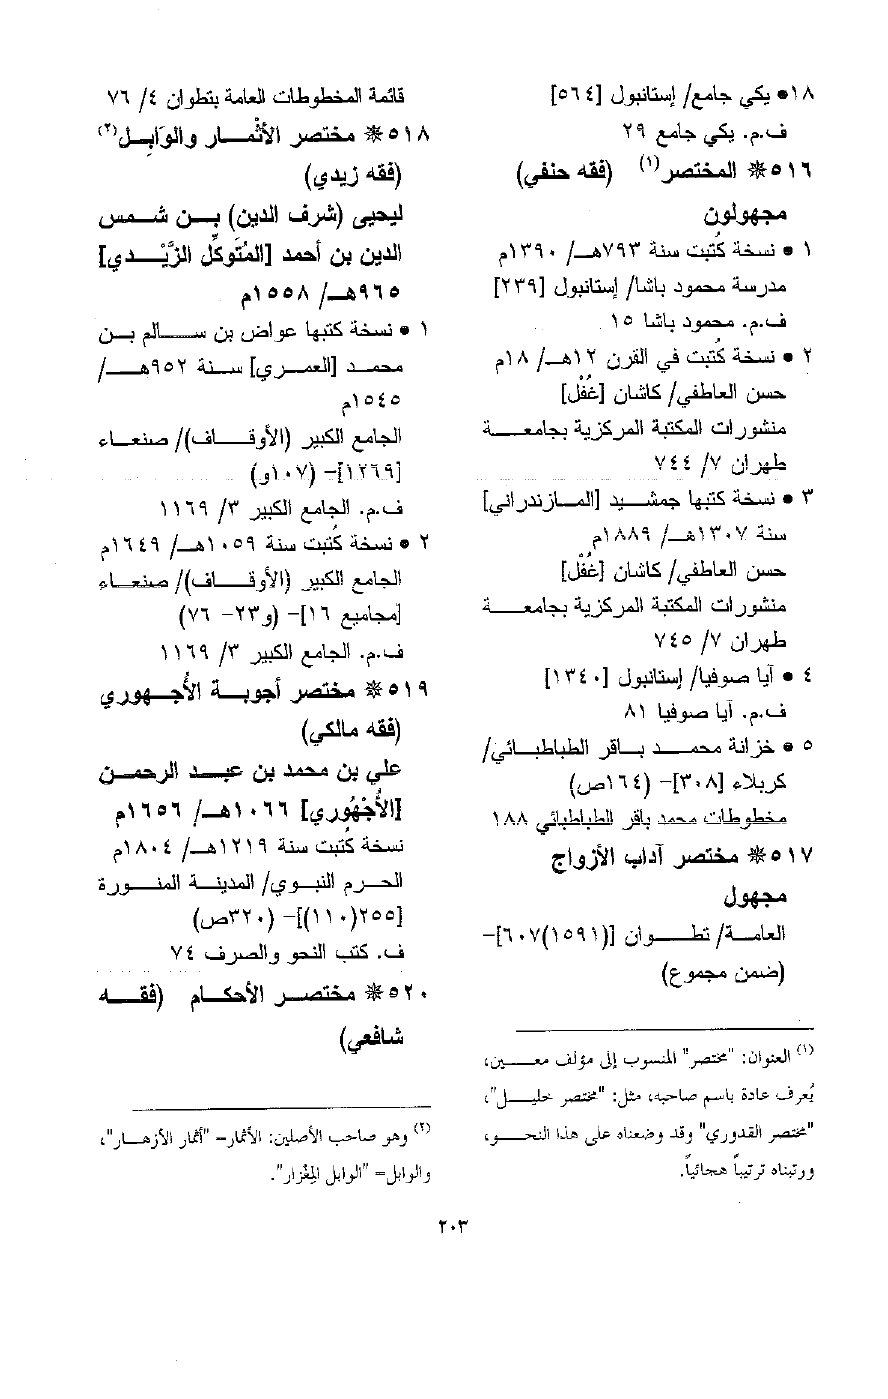 ١٨• يكي جامع/ إستانبول [٥٦٤]
ف.م. يكي جامع ٢٩
٥١٦* المختصر(١) (فقه حنفي)
مجهولون
١ • نسخة كُتبت سنة ٧٩٣هـ/ ١٣٩٠م
مدرسة محمود باشا/ إستانبول [٢٣٩]
ف.م. محمود باشا ١٥
٢ • نسخة كُتبت في القرن ١٢هـ/ ١٨م
حسن العاطفي/ كاشان [غُفْل]
منشورات المكتبة المركزية بجامعة
طهران ٧/ ٧٤٤
٣ • نسخة كتبها جمشيد [المازندراني]
سنة ١٣٠٧هـ/ ١٨٨٩م
حسن العاطفي/ كاشان [غُفْل]
منشورات المكتبة المركزية بجامعة
طهران ٧/ ٧٤٥
٤ • آيا صوفيا/ إستانبول [١٣٤٠]
ف.م. آيا صوفيا ٨١
٥ • خزانة محمد باقر الطباطبائي/
كربلاء [٣٠٨]- (١٦٤ص)
مخطوطات محمد باقر الطباطبائي ١٨٨
٥١٧* مختصر آداب الأزواج
مجهول
العامة/ تطوان [(١٥٩١)٦٠٧]-
(ضمن مجموع)
(١) العنوان: "مختصر" المنسوب إلى مؤلف معين،
يُعرف عادة باسم صاحبه، مثل: "مختصر خليل"،
"مختصر القدوري" وقد وضعناه على هذا النحو،
ورتبناه ترتيباً هجائياً.
قائمة المخطوطات العامة بتطوان ٤/ ٧٦
٥١٨* مختصر الأثْمار والوَابِل(٢)
(فقه زيدي)
ليحيى (شرف الدين) بن شمس
الدين بن أحمد [المُتَوكِّل الزَّيْدي]
٩٦٥هـ/ ١٥٥٨م
١ • نسخة كتبها عواض بن سالم بن
محمد [العمري] سنة ٩٥٢هـ/
١٥٤٥م
الجامع الكبير (الأوقاف)/ صنعاء
[١٢٦٩]- (١٠٧و)
ف.م. الجامع الكبير ٣/ ١١٦٩
٢ • نسخة كُتبت سنة ١٠٥٩هـ/ ١٦٤٩م
الجامع الكبير (الأوقاف)/ صنعاء
[مجاميع ١٦]- (و٢٣- ٧٦)
ف.م. الجامع الكبير ٣/ ١١٦٩
٥١٩* مختصر أجوبة الأُجهوري
(فقه مالكي)
علي بن محمد بن عبد الرحمن
[الأُجْهُوري] ١٠٦٦هـ/ ١٦٥٦م
نسخة كُتبت سنة ١٢١٩هـ/ ١٨٠٤م
الحرم النبوي/ المدينة المنورة
[٢٥٥(١١٠)]- (٣٢٠ص)
ف. كتب النحو والصرف ٧٤
٥٢٠* مختصر الأحكام (فقه
شافعي)
(٢) وهو صاحب الأصلين: الأثمار= "أثمار الأزهار"،
والوابل= "الوابل المِغْزار".
٢٠٣